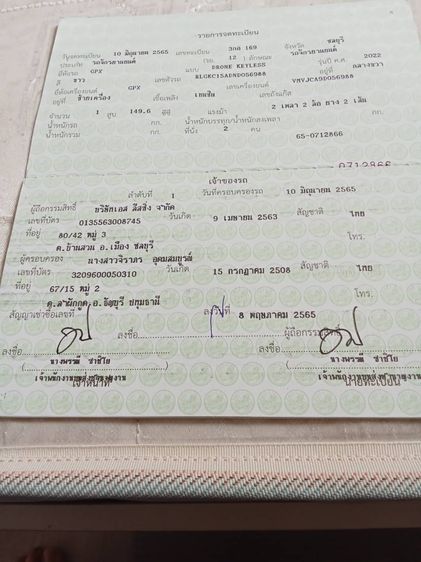 รายการจดทะเบียน
วันจดทะเบียน 10 มิถุนายน 2565 เลขทะเบียน 3กฮ 169 จังหวัด ชลบุรี
ประเภท รถจักรยานยนต์ (รย. 12 ) ลักษณะ รถจักรยานยนต์
ยี่ห้อรถ GPX แบบ DRONE KEYLESS รุ่นปี ค.ศ. 2022
สี ขาว เลขตัวรถ RLGKC15ADND056988 อยู่ที่ กลางขวา
ยี่ห้อเครื่องยนต์ GPX เลขเครื่องยนต์ VMVJCA9D056988
อยู่ที่ ซ้ายเครื่อง เชื้อเพลิง เบนซิน เลขถังแก๊ส
จำนวน 1 สูบ 149.6 ซีซี แรงม้า 2 เพลา 2 ล้อ ยาง 2 เส้น
น้ำหนักรถ กก. น้ำหนักบรรทุก/น้ำหนักลงเพลา กก.
น้ำหนักรวม กก. ที่นั่ง 2 คน 65-0712866
0712866
เจ้าของรถ
ลำดับที่ 1 วันที่ครอบครองรถ 10 มิถุนายน 2565
ผู้ถือกรรมสิทธิ์ บริษัทเอส ลีสซิ่ง จำกัด
เลขที่บัตร 0135563008745 วันเกิด 9 เมษายน 2563 สัญชาติ ไทย
ที่อยู่ 80/42 หมู่ 3
ต.บ้านสวน อ.เมือง ชลบุรี โทร.
ผู้ครอบครอง นางสาวจิราภร อุดมสมบูรณ์
เลขที่บัตร 3209600050310 วันเกิด 15 กรกฎาคม 2508 สัญชาติ ไทย
ที่อยู่ 67/15 หมู่ 2
ต.ลำผักกูด อ.ธัญบุรี ปทุมธานี โทร.
สัญญาเช่าซื้อเลขที่ ลงวันที่ 8 พฤษภาคม 2565
ลงชื่อ ผู้ถือกรรมสิทธิ์
ลงชื่อ ลงชื่อ
เจ้าหน้าที่ นายทะเบียน